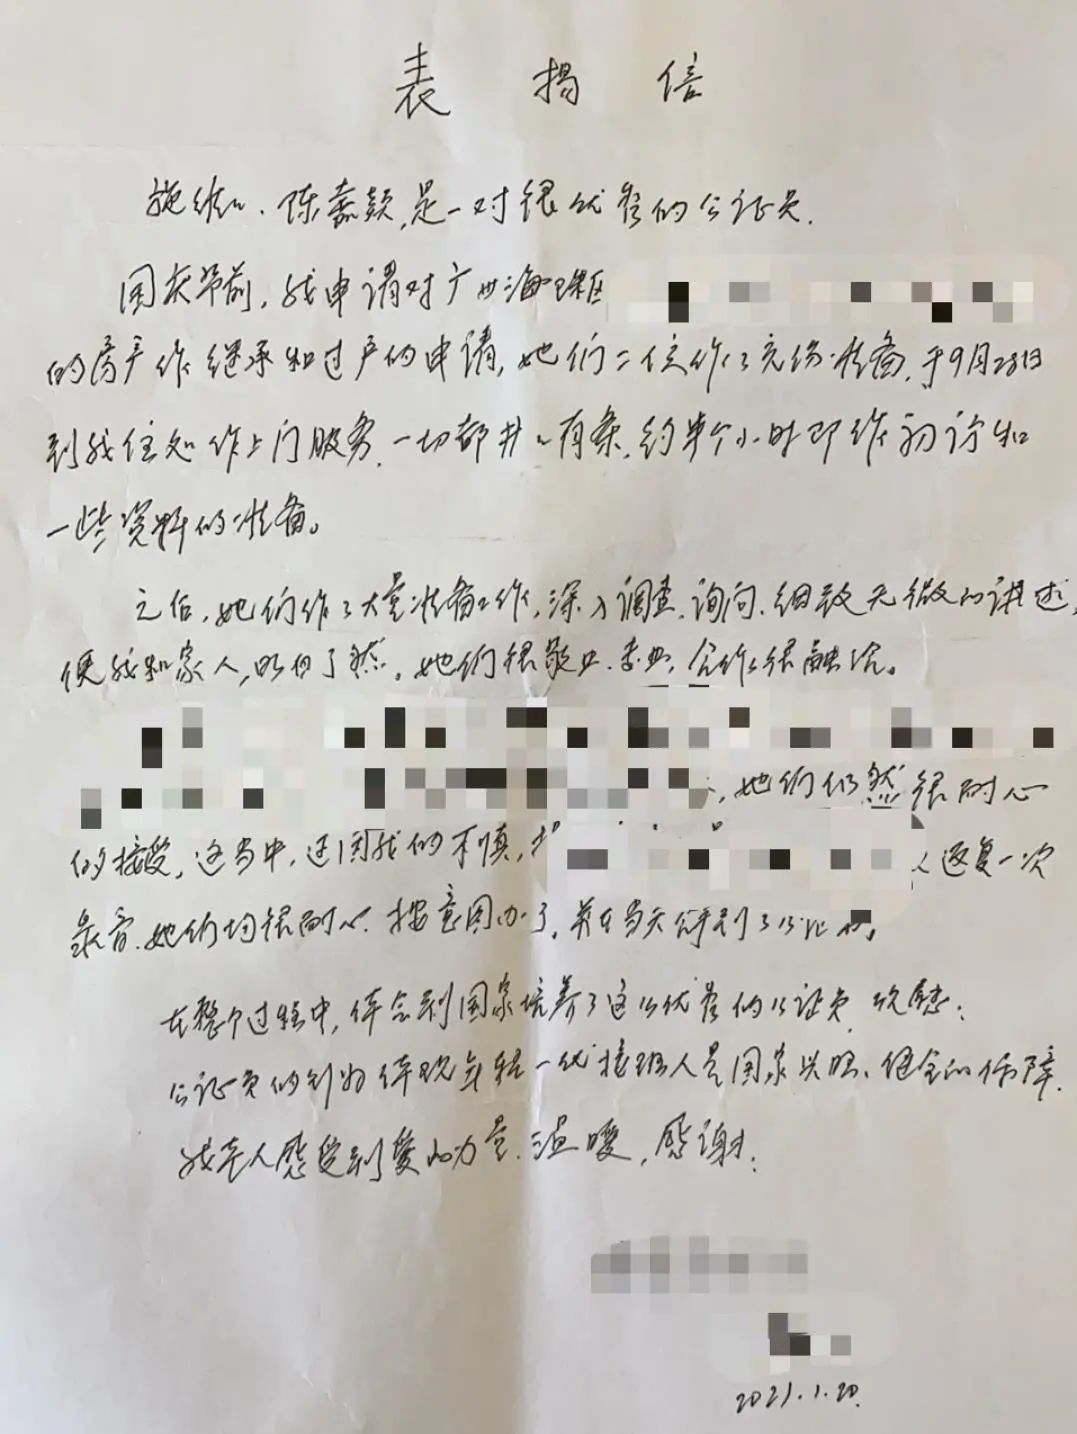 表揭信
施维, 陈嘉颖,是一对很优秀的公证员.
国庆节前,我申请对广州海珠区
的房产作继承和过户的申请,她们二位作了充份准备,于9月28日
到我住处作上门服务,一切都井々有条,约半个小时即作初访和
一些资料的准备。
之后,她们作了大量准备工作,深入调查、询问、细致无微的讲述,
使我和家人,明白了然。她们很敬业、专业,合作很融洽。
,她们仍然很耐心
的接受,这当中,还因我的不慎, 返复一次
录音,她们均很耐心,按意图办了,并在当天 到了
在整个过程中,体会到国家培养了这么优秀的公证员,欣慰:
公证员的 体现年轻一代接班人是国家兴旺、健全的保障.
我老人感受到爱的力量、温暖,感谢:
2021.1.20.